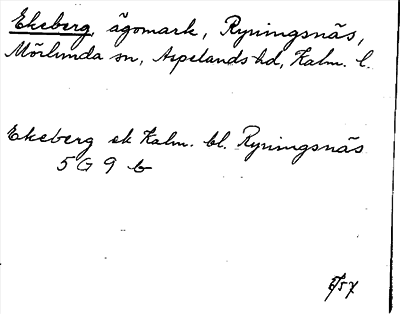 Ekeberg, ägomark, Ryningsnäs,
Mörlunda sn, Aspelands hd, Kalm. l.
Ekeberg ek Kalm. bl. Ryningsnäs
5 G 9 b